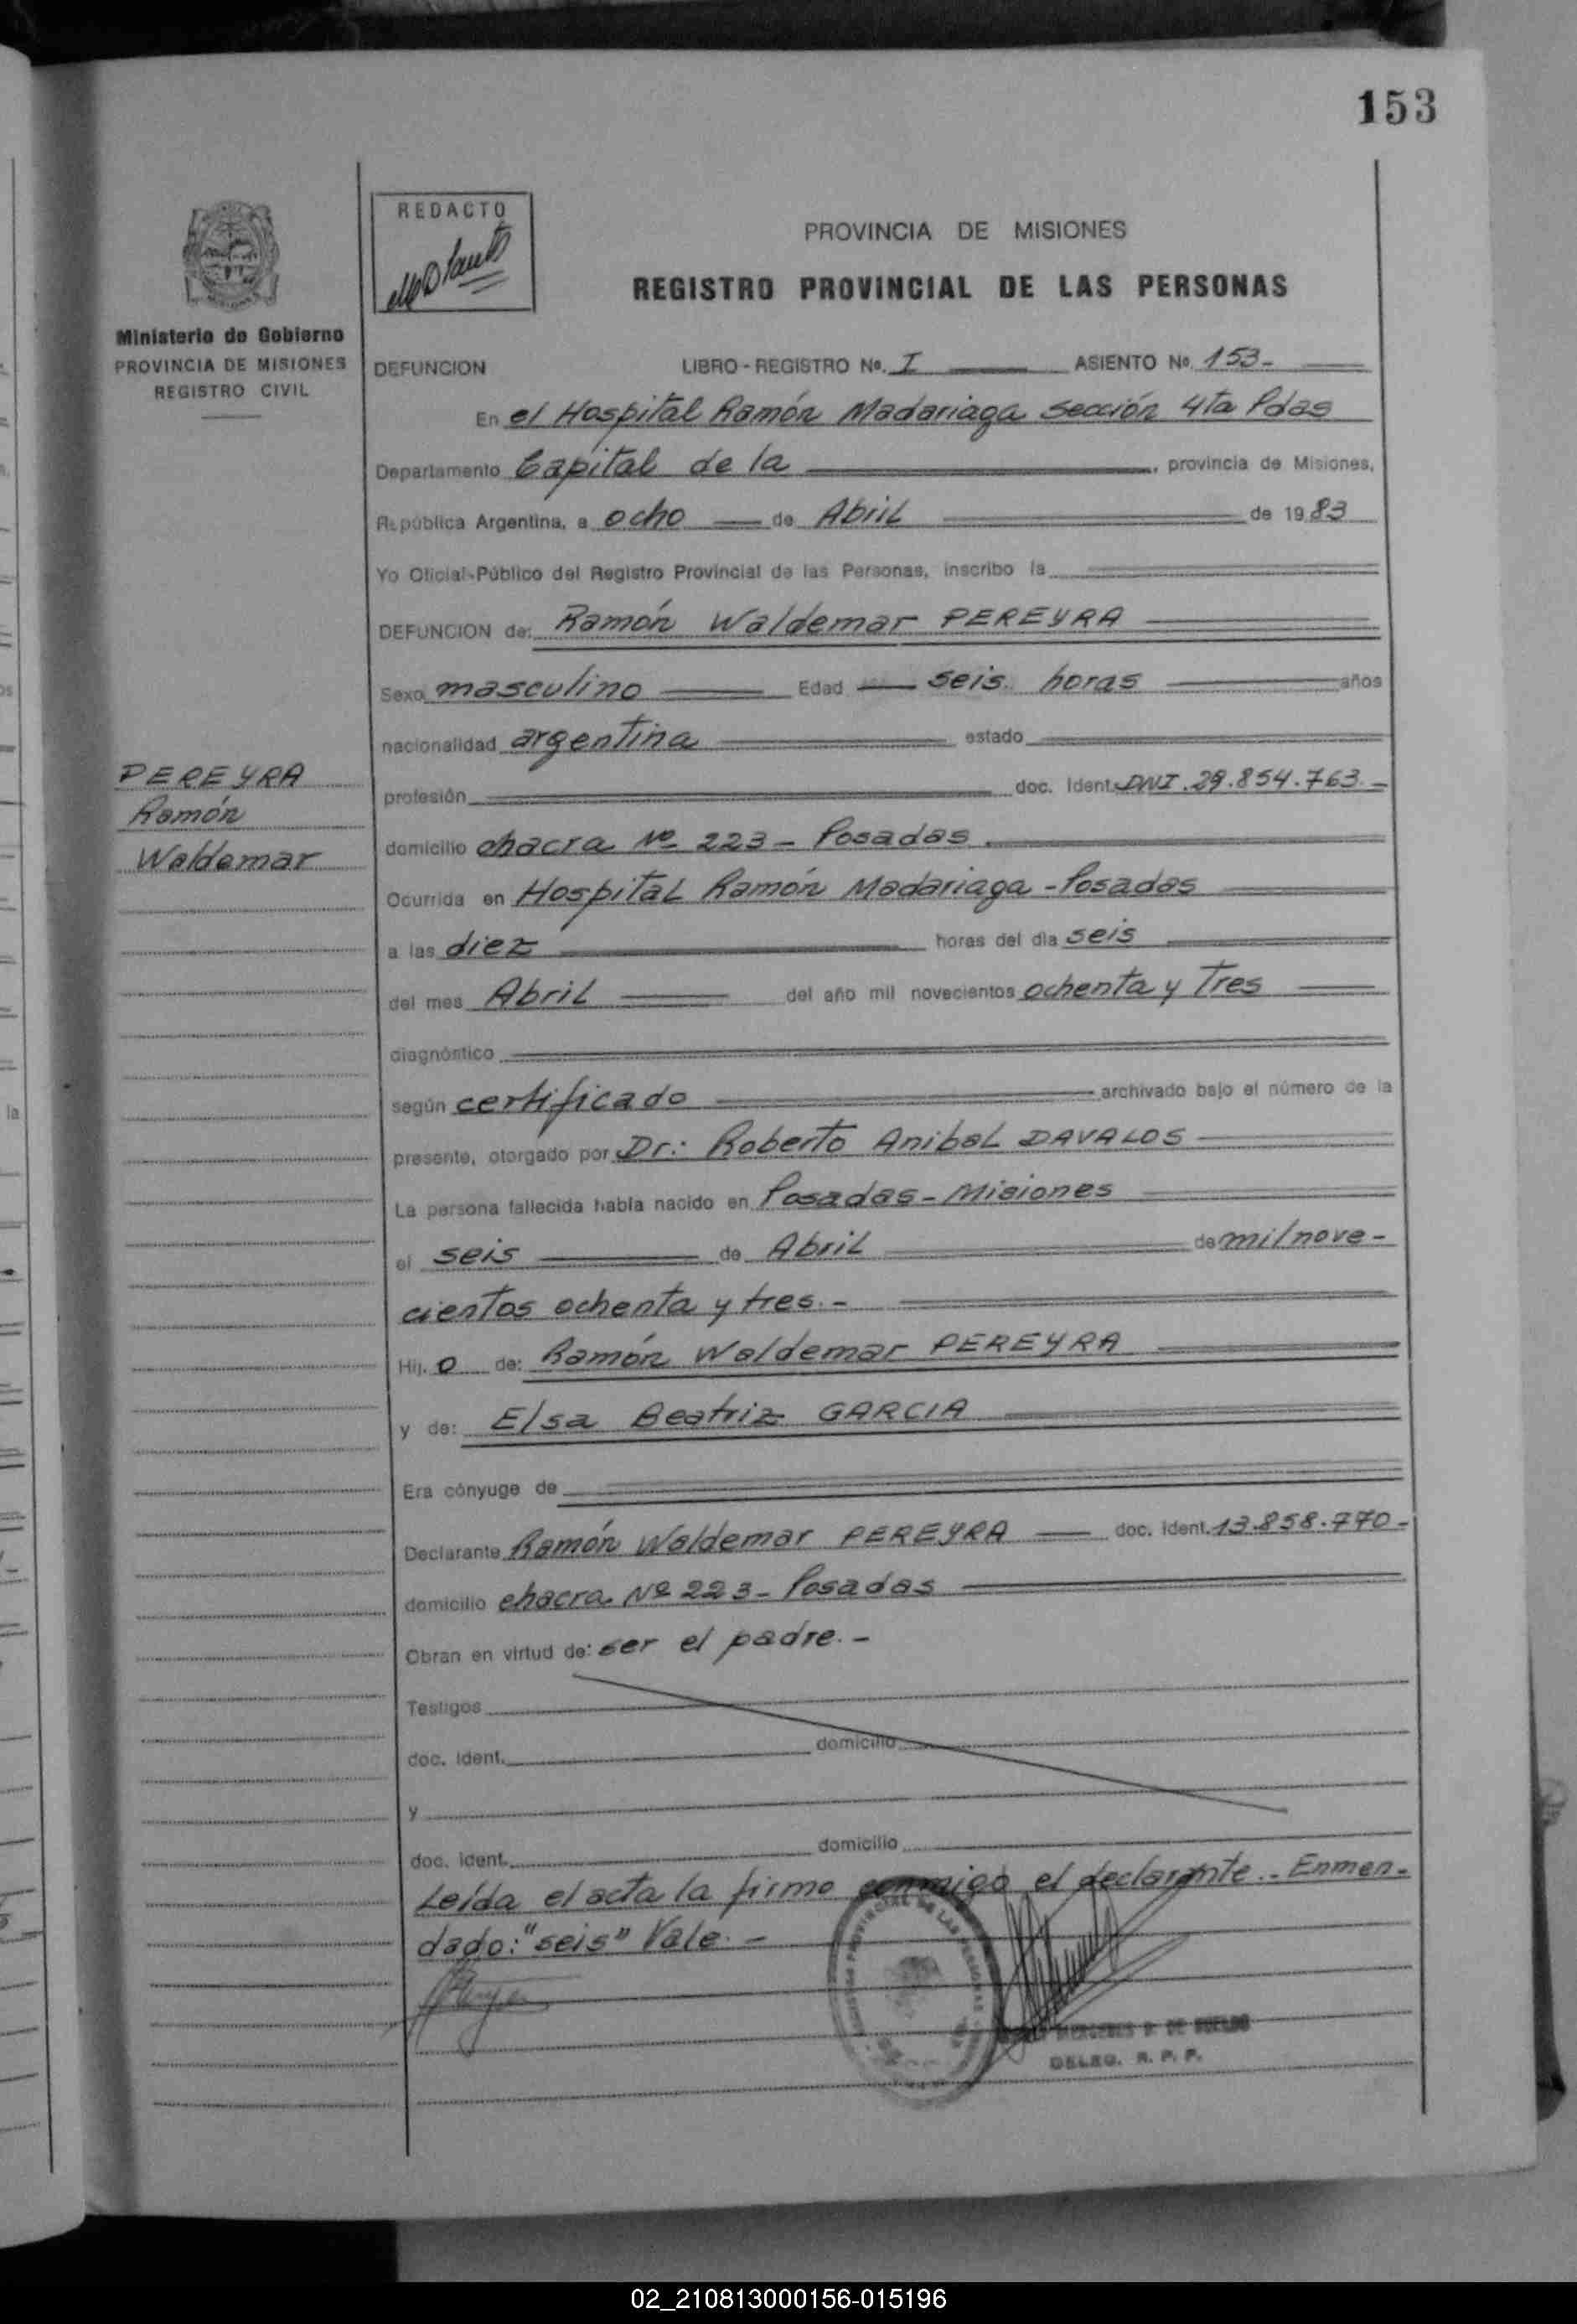 153
REDACTO
PROVINCIA DE MISIONES
REGISTRO PROVINCIAL DE LAS PERSONAS
Ministerio de Gobierno
PROVINCIA DE MISIONES
REGISTRO CIVIL
DEFUNCION LIBRO - REGISTRO No. I ASIENTO No. 153-
En el Hospital Ramón Madariaga sección 4ta Pdas
Departamento Capital de la , provincia de Misiones,
República Argentina, a ocho de Abril de 1983
Yo Oficial-Público del Registro Provincial de las Personas, inscribo la
DEFUNCION de: Ramón Waldemar PEREYRA
Sexo masculino Edad seis horas años
nacionalidad argentina estado
PEREYRA
Ramón
Waldemar
profesión doc. Ident. DNI. 29.854.763.-
domicilio chacra Nº 223 - Posadas
Ocurrida en Hospital Ramón Madariaga - Posadas
a las diez horas del día seis
del mes Abril del año mil novecientos ochenta y Tres
diagnóstico
según certificado archivado bajo el número de la
presente, otorgado por Dr: Roberto Anibal DAVALOS
La persona fallecida había nacido en Posadas - Misiones
el seis de Abril de mil nove-
cientos ochenta y tres.-
Hij. o de: Ramón Waldemar PEREYRA
y de: Elsa Beatriz GARCIA
Era cónyuge de
Declarante Ramón Waldemar PEREYRA doc. ident. 13.858.770-
domicilio chacra Nº 223 - Posadas
Obran en virtud de: ser el padre.-
Testigos
doc. ident. domicilio
y
doc. ident. domicilio
Leída el acta la firma conmigo el declarante.- Enmen-
dado: "seis" Vale.-
DELEG. R. P. P.
02_210813000156-015196